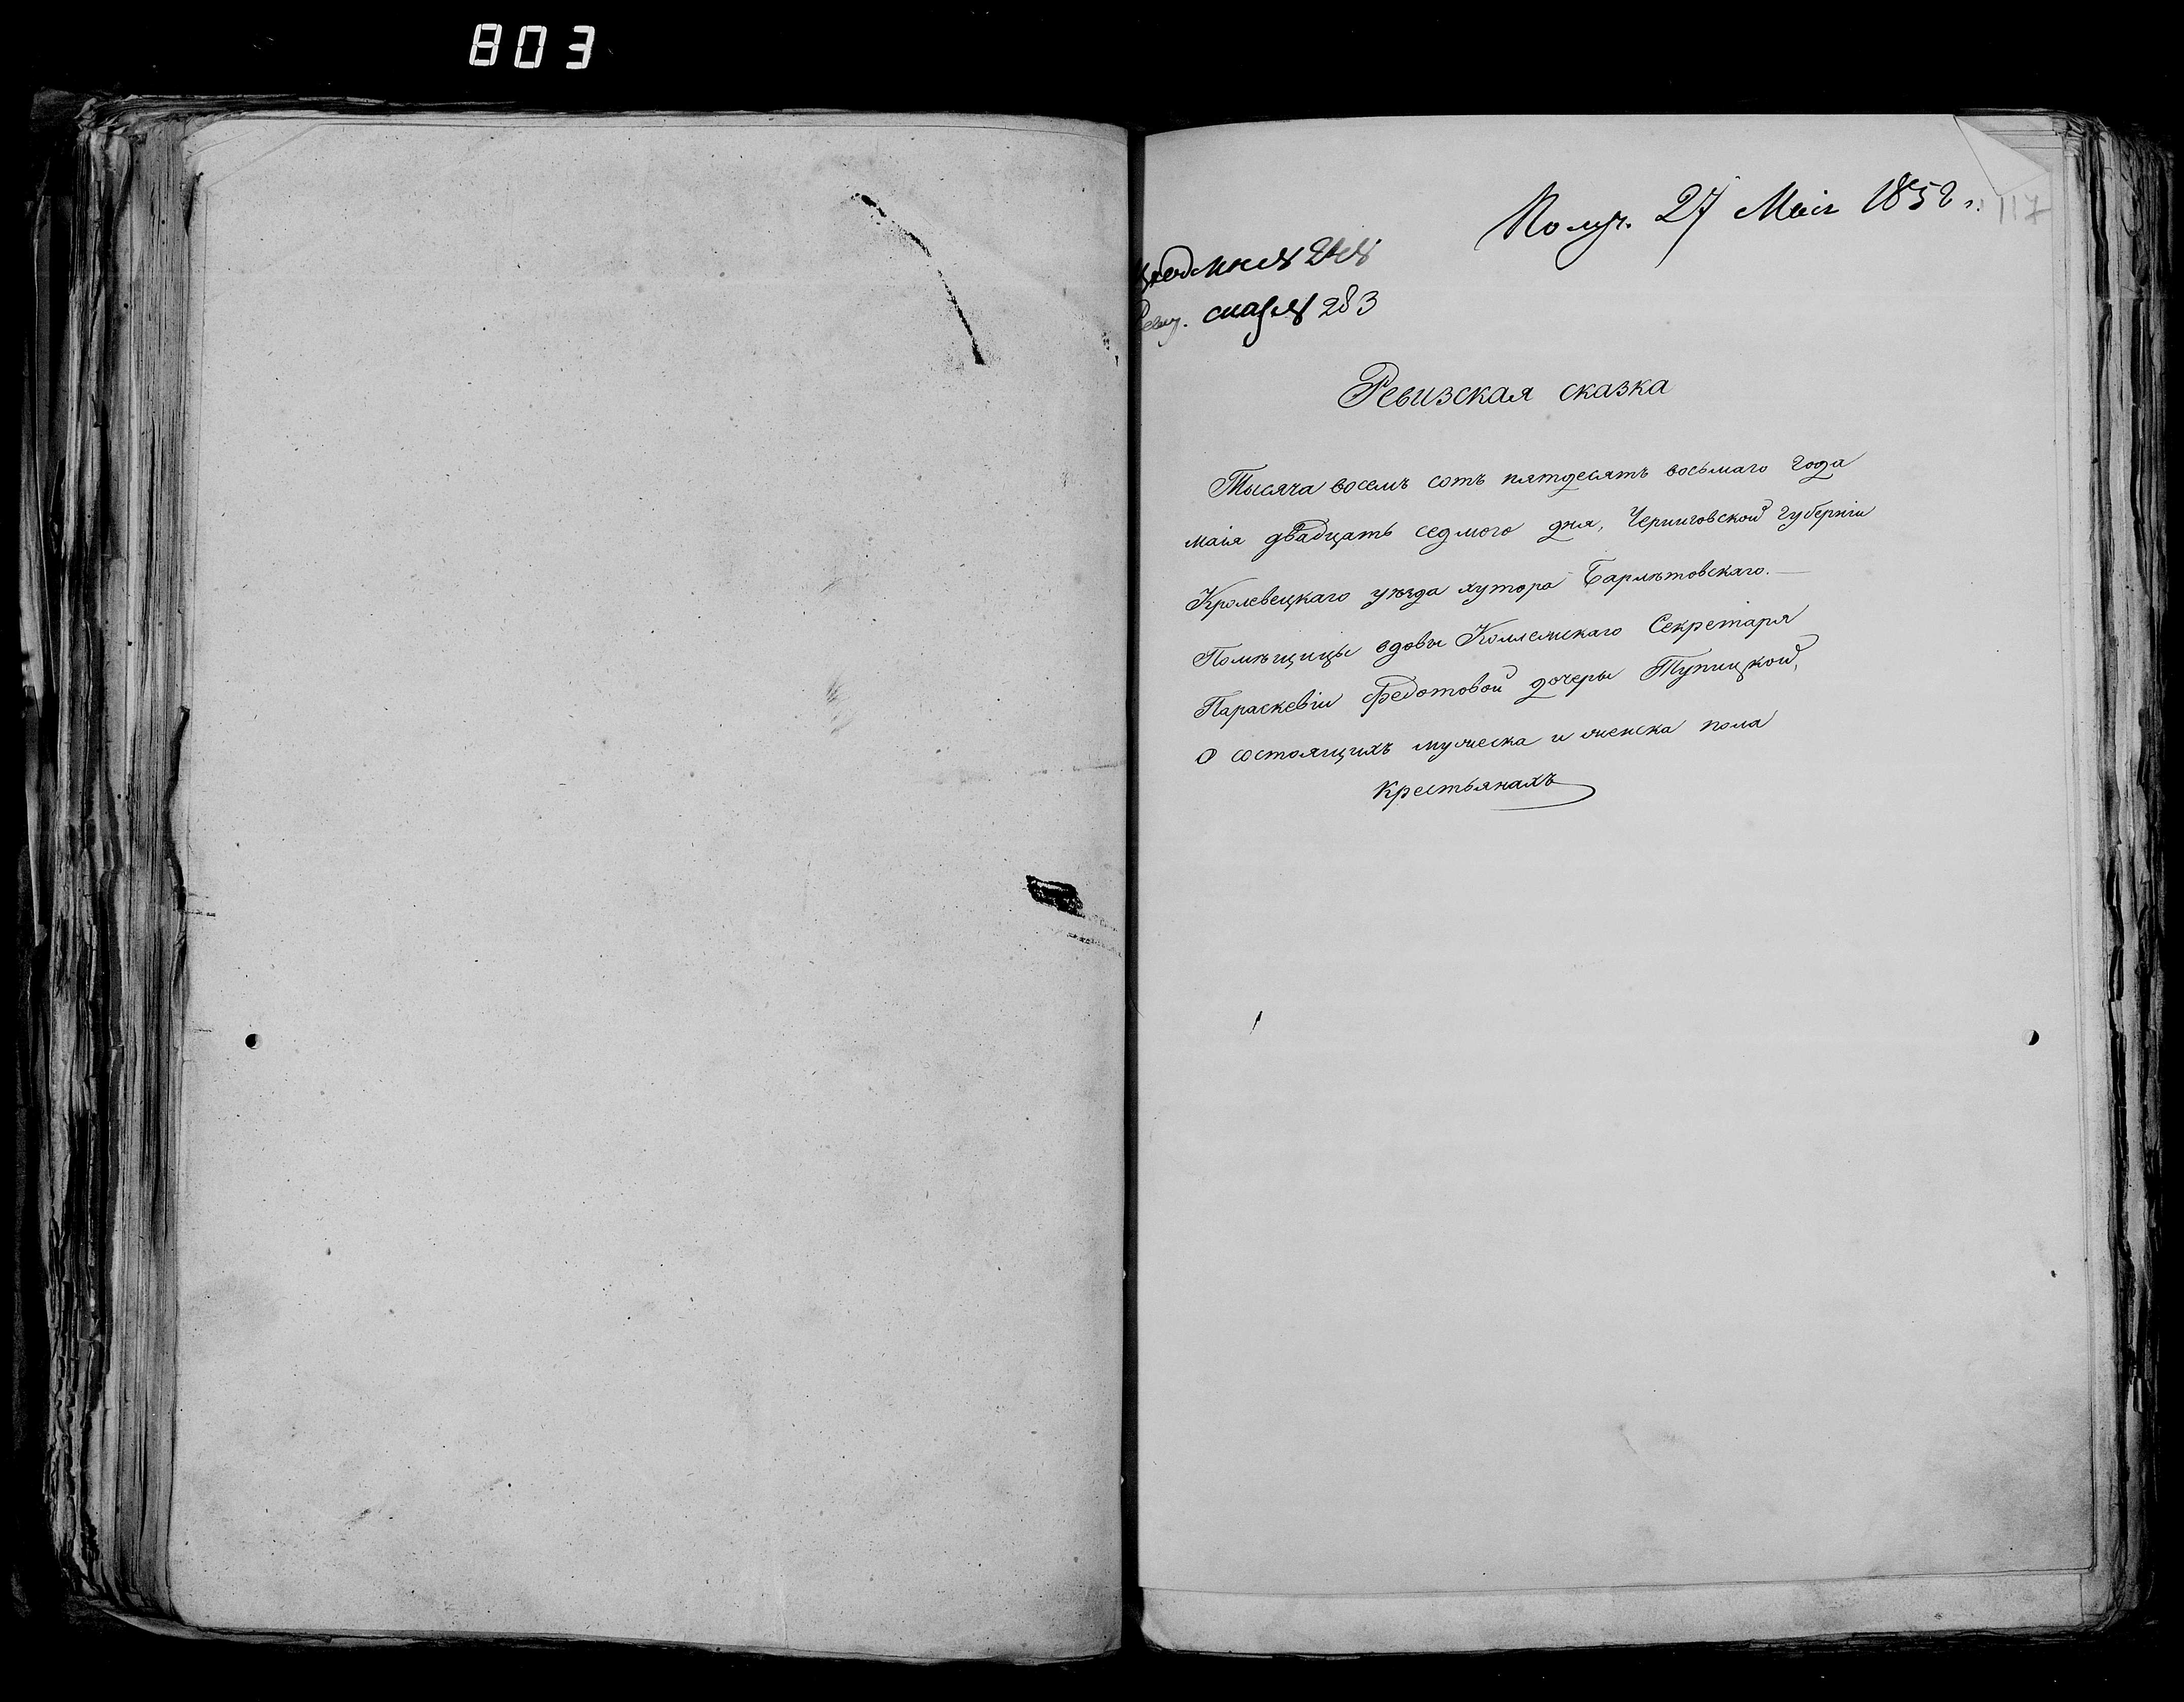 803
Получ. 27 Маія 1858 г.
117
283
Ревизская сказка
Тысяча восемъ сотъ пятдесятъ восьмаго года
маія двадцать седмого дня, Черниговской губерніи
Кролевецкаго уѣзда хутора Бармѣтовскаго.
Помѣщицы вдовы Коллежскаго Секретаря
Параскевіи Федотовой дочеры Тупицкой,
О состоящихъ мужеска и женска пола
крестьянахъ